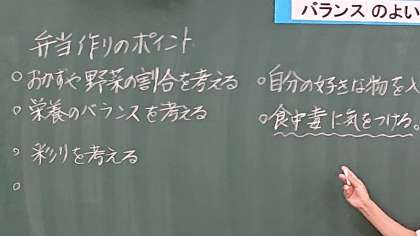 バランスのよい
弁当作りのポイント
○おかずや野菜の割合を考える
○栄養のバランスを考える
○彩りを考える
○
○自分の好きな物を入
○食中毒に気をつける。